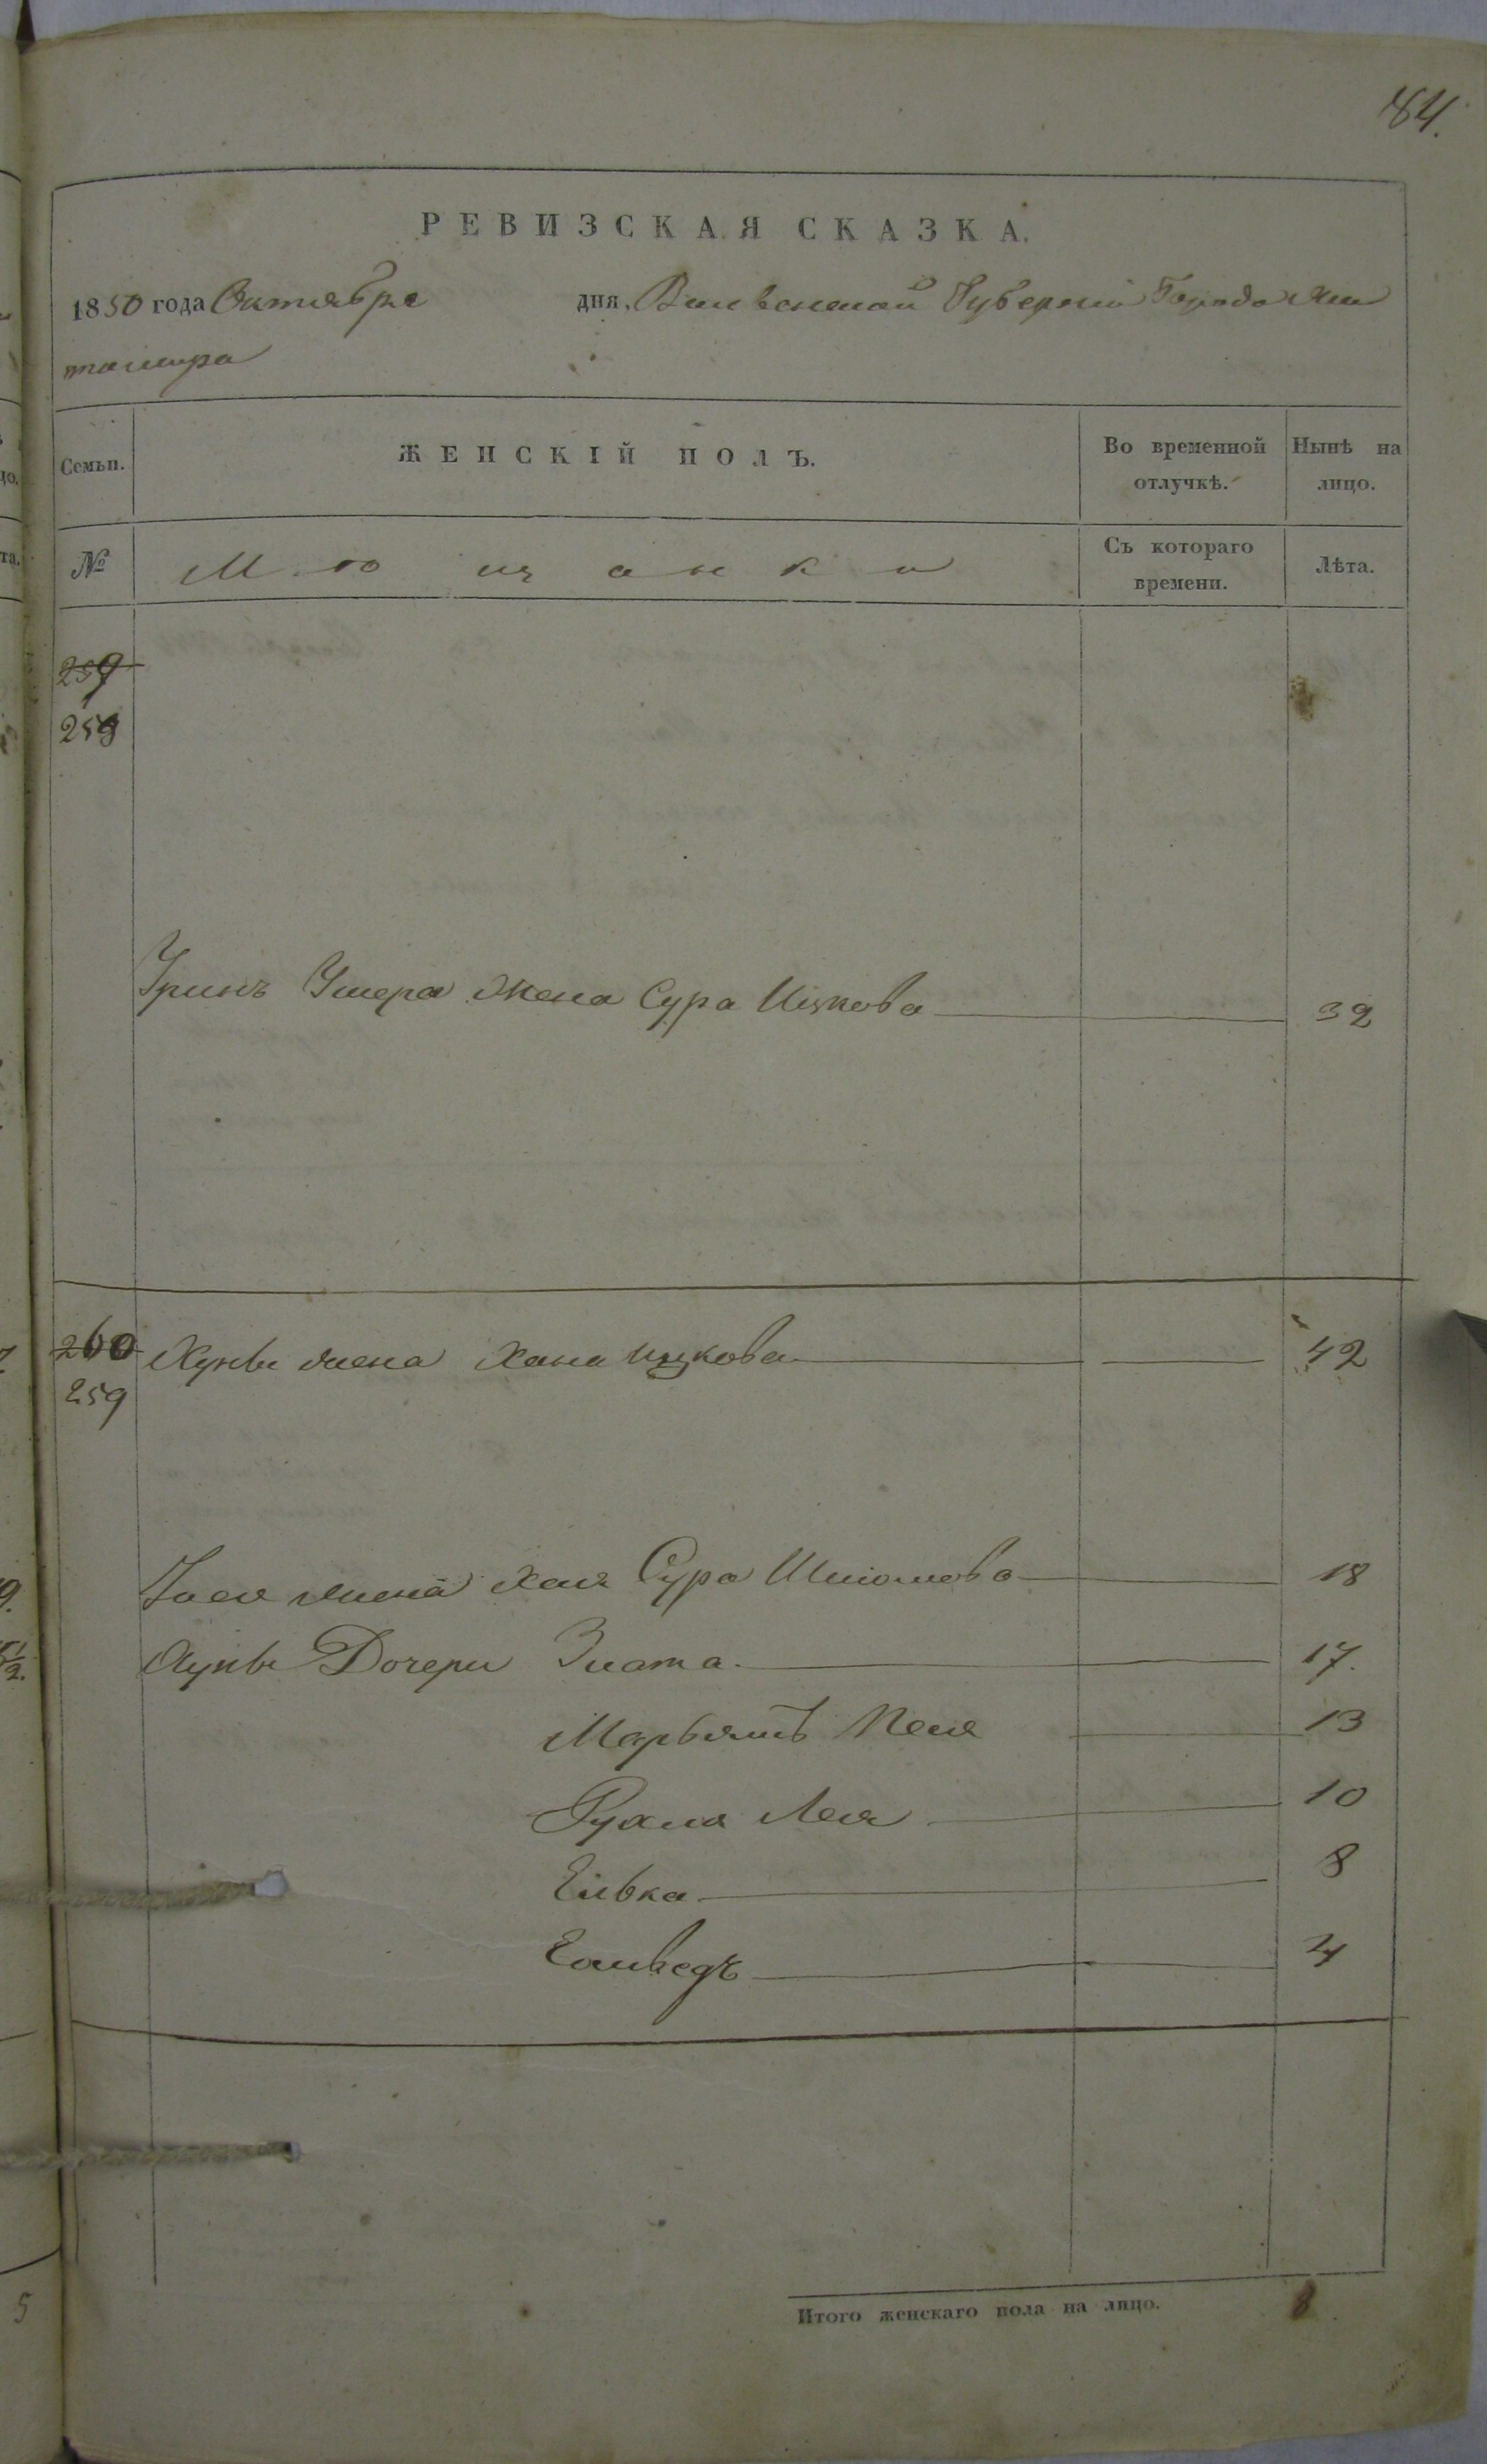 84.
РЕВИЗСКАЯ СКАЗКА.
1850 года Октября дня, Волынской Губерніи Города Жи
томира
Семьи. ЖЕНСКІЙ ПОЛЪ. Во временной отлучкѣ. Нынѣ на лицо.
№ Мѣщанки Съ котораго времени. Лѣта.
259
258
Уринъ Ушера Жена Сура Ицкова 32
260 жена Хана Ицкова 42
259
жена Хая Сура Шліомова 18
Дочери Злата. 17.
Марьямъ Песя 13
Рухля Лея 10
Сивка 8
4
Итого женскаго пола на лицо. 8
5